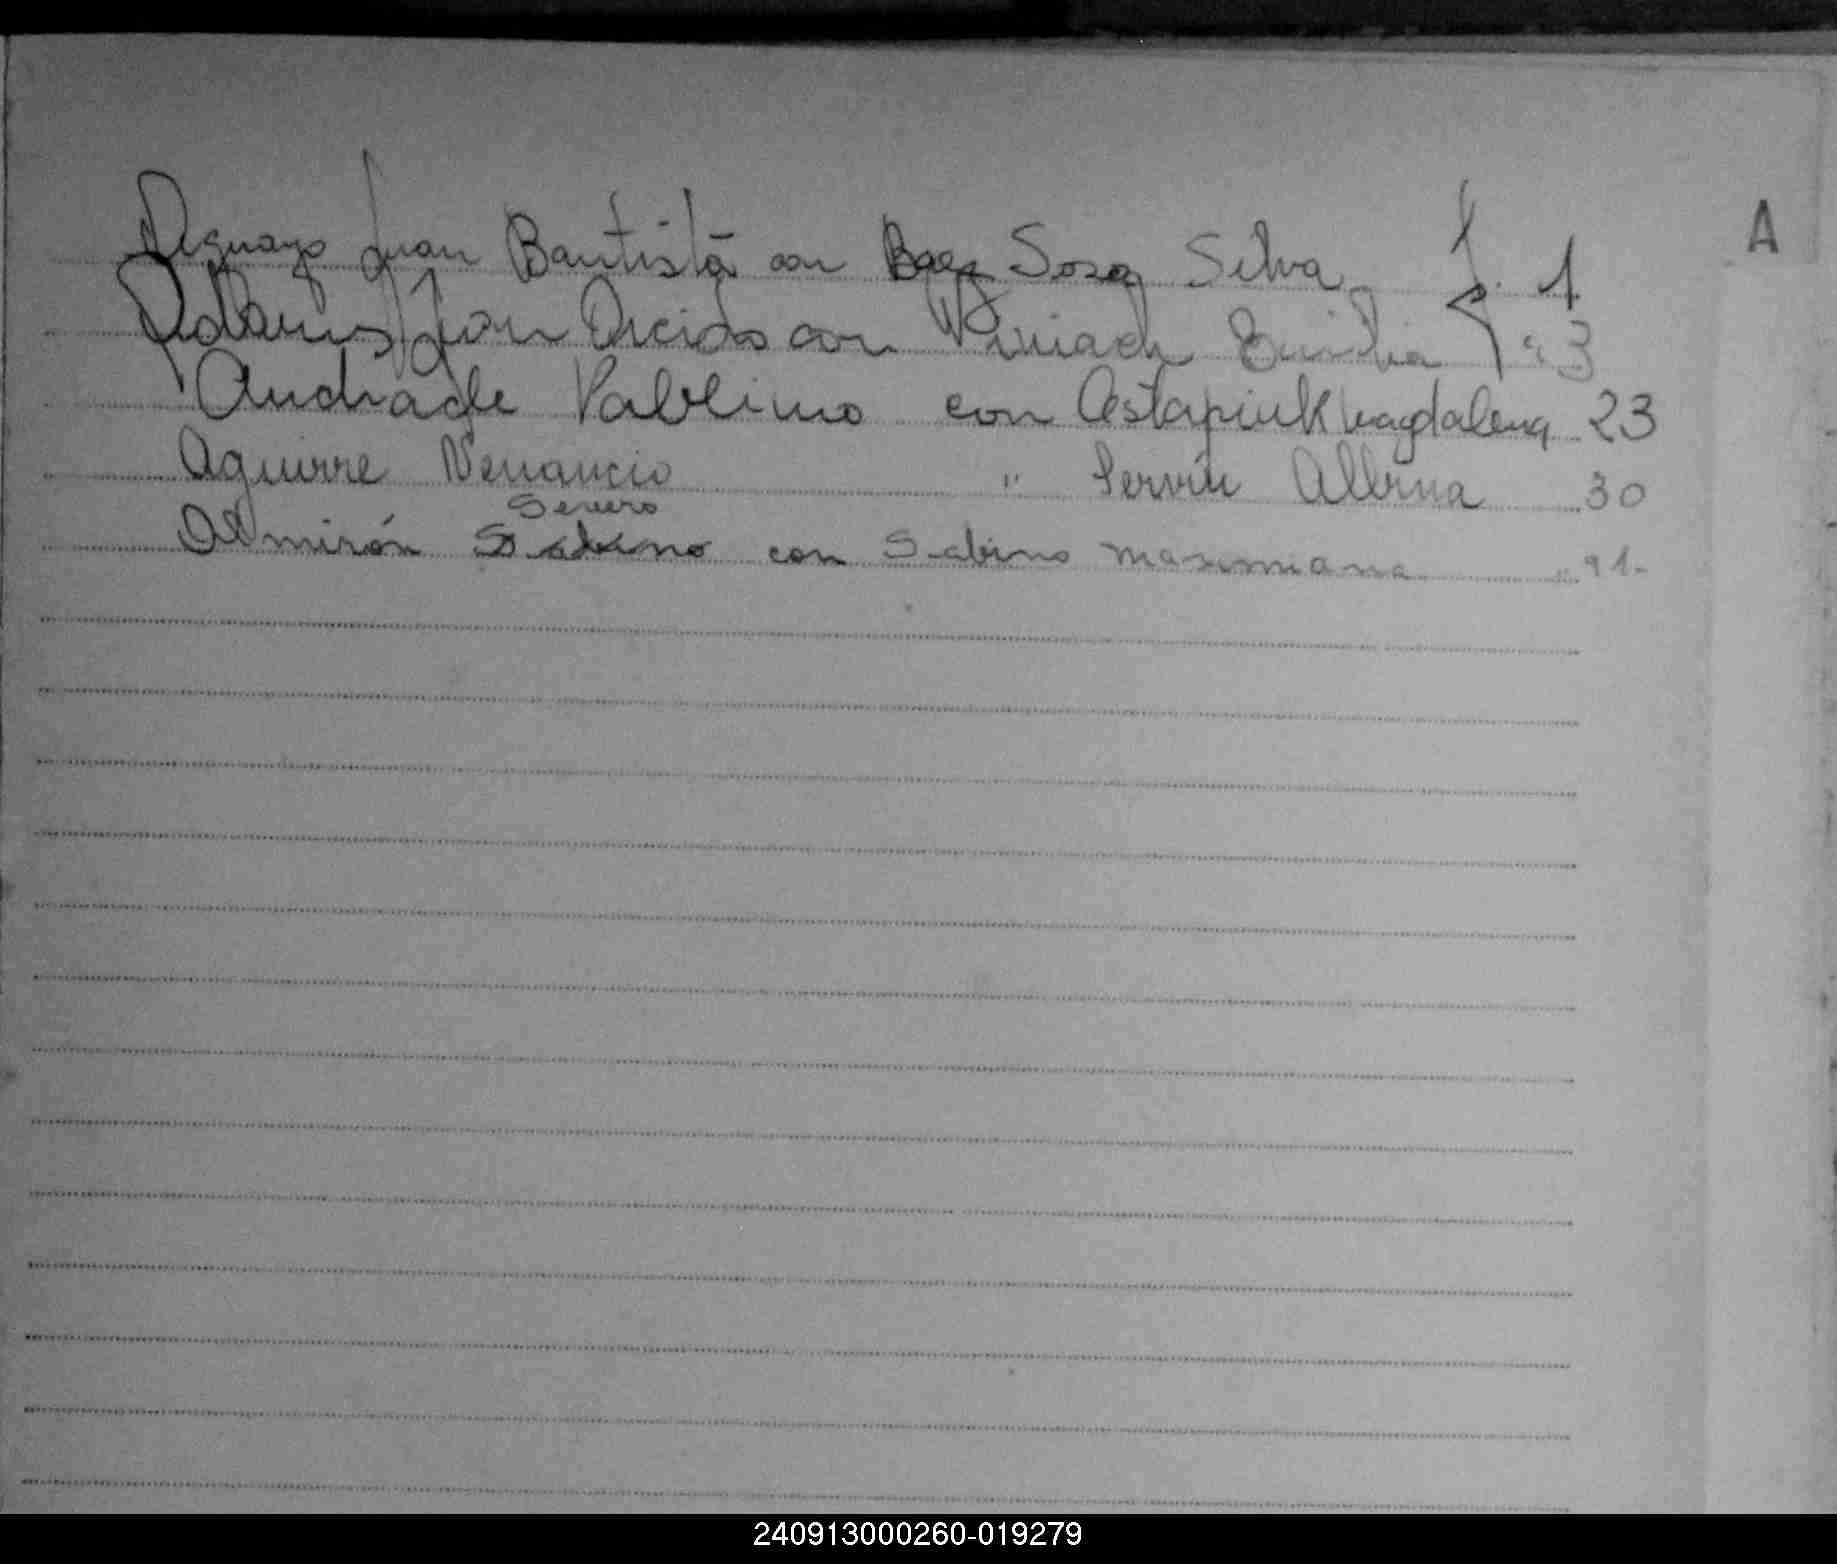 A
Aguayo Juan Bautista con Baez Sosa Silva f. 1
Adams Juan con Emilia f " 3
Andrade Pablino con Astapiuk Magdalena 23
Aguirre Venancio " Servín Albina 30
Severo
Almirón Sabino con Sabino Maximiana " 91-
240913000260-019279